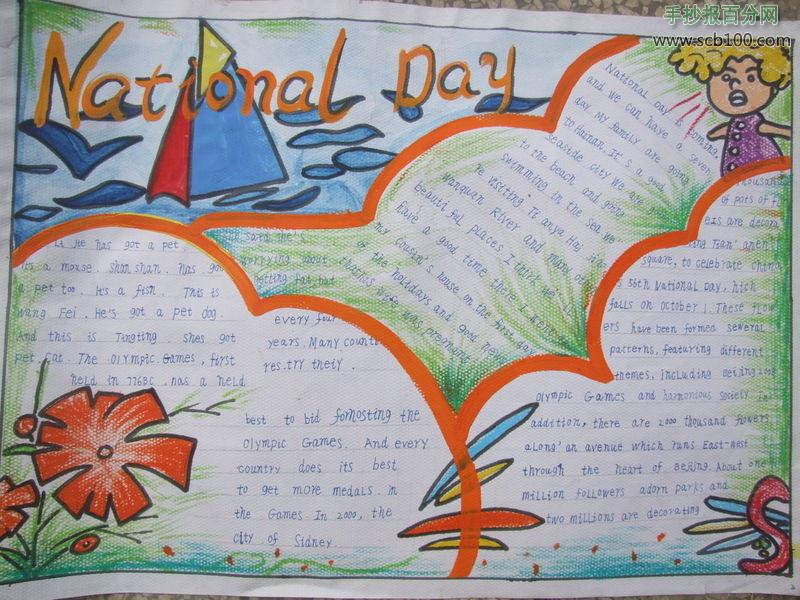 手抄报百分网
www.scb100.com
National Day
National Day is coming.
and we can have a seven
day. My family are going
to Hainan. It's a good
seaside city We are
to the beach and going
swimming in the sea. We
re visiting Tianya Hai
Wanquan River and many oth
beautiful places I think we
have a good time there I went to
my cousin's house on the first day
of the holidays and good
thomas wife was preparing
He has got a pet
It's a mouse. Shan shan. has got
a pet too. It's a fish. This is
Wang Fei. He's got a pet dog.
And this is Tingting. Shes got
pet cat. The Olympic. Games, first
held in 776BC. has a held
said she's
worrying about
getting fat but
every four
years. Many count
res.try theiy.
best to bid fomosting the
Olympic Games. And every
country does its best
to get more medals. in
the Games In 2000, the
city of Sidney
thousand
of pots of fl
ers are decora
ting Tian' anmen
square, to celebrate china
s 56th National Day, hich
falls on october 1. These flow
ers have been formed several
patterns, featuring different
themes, including Beijing 2008
Olympic Games and harmonious society In
addition, there are 2000 thousand flowers
along' an avenue which runs East-west
through the heart of Beijing. About one
million followers adorn parks and
two millions are decorating